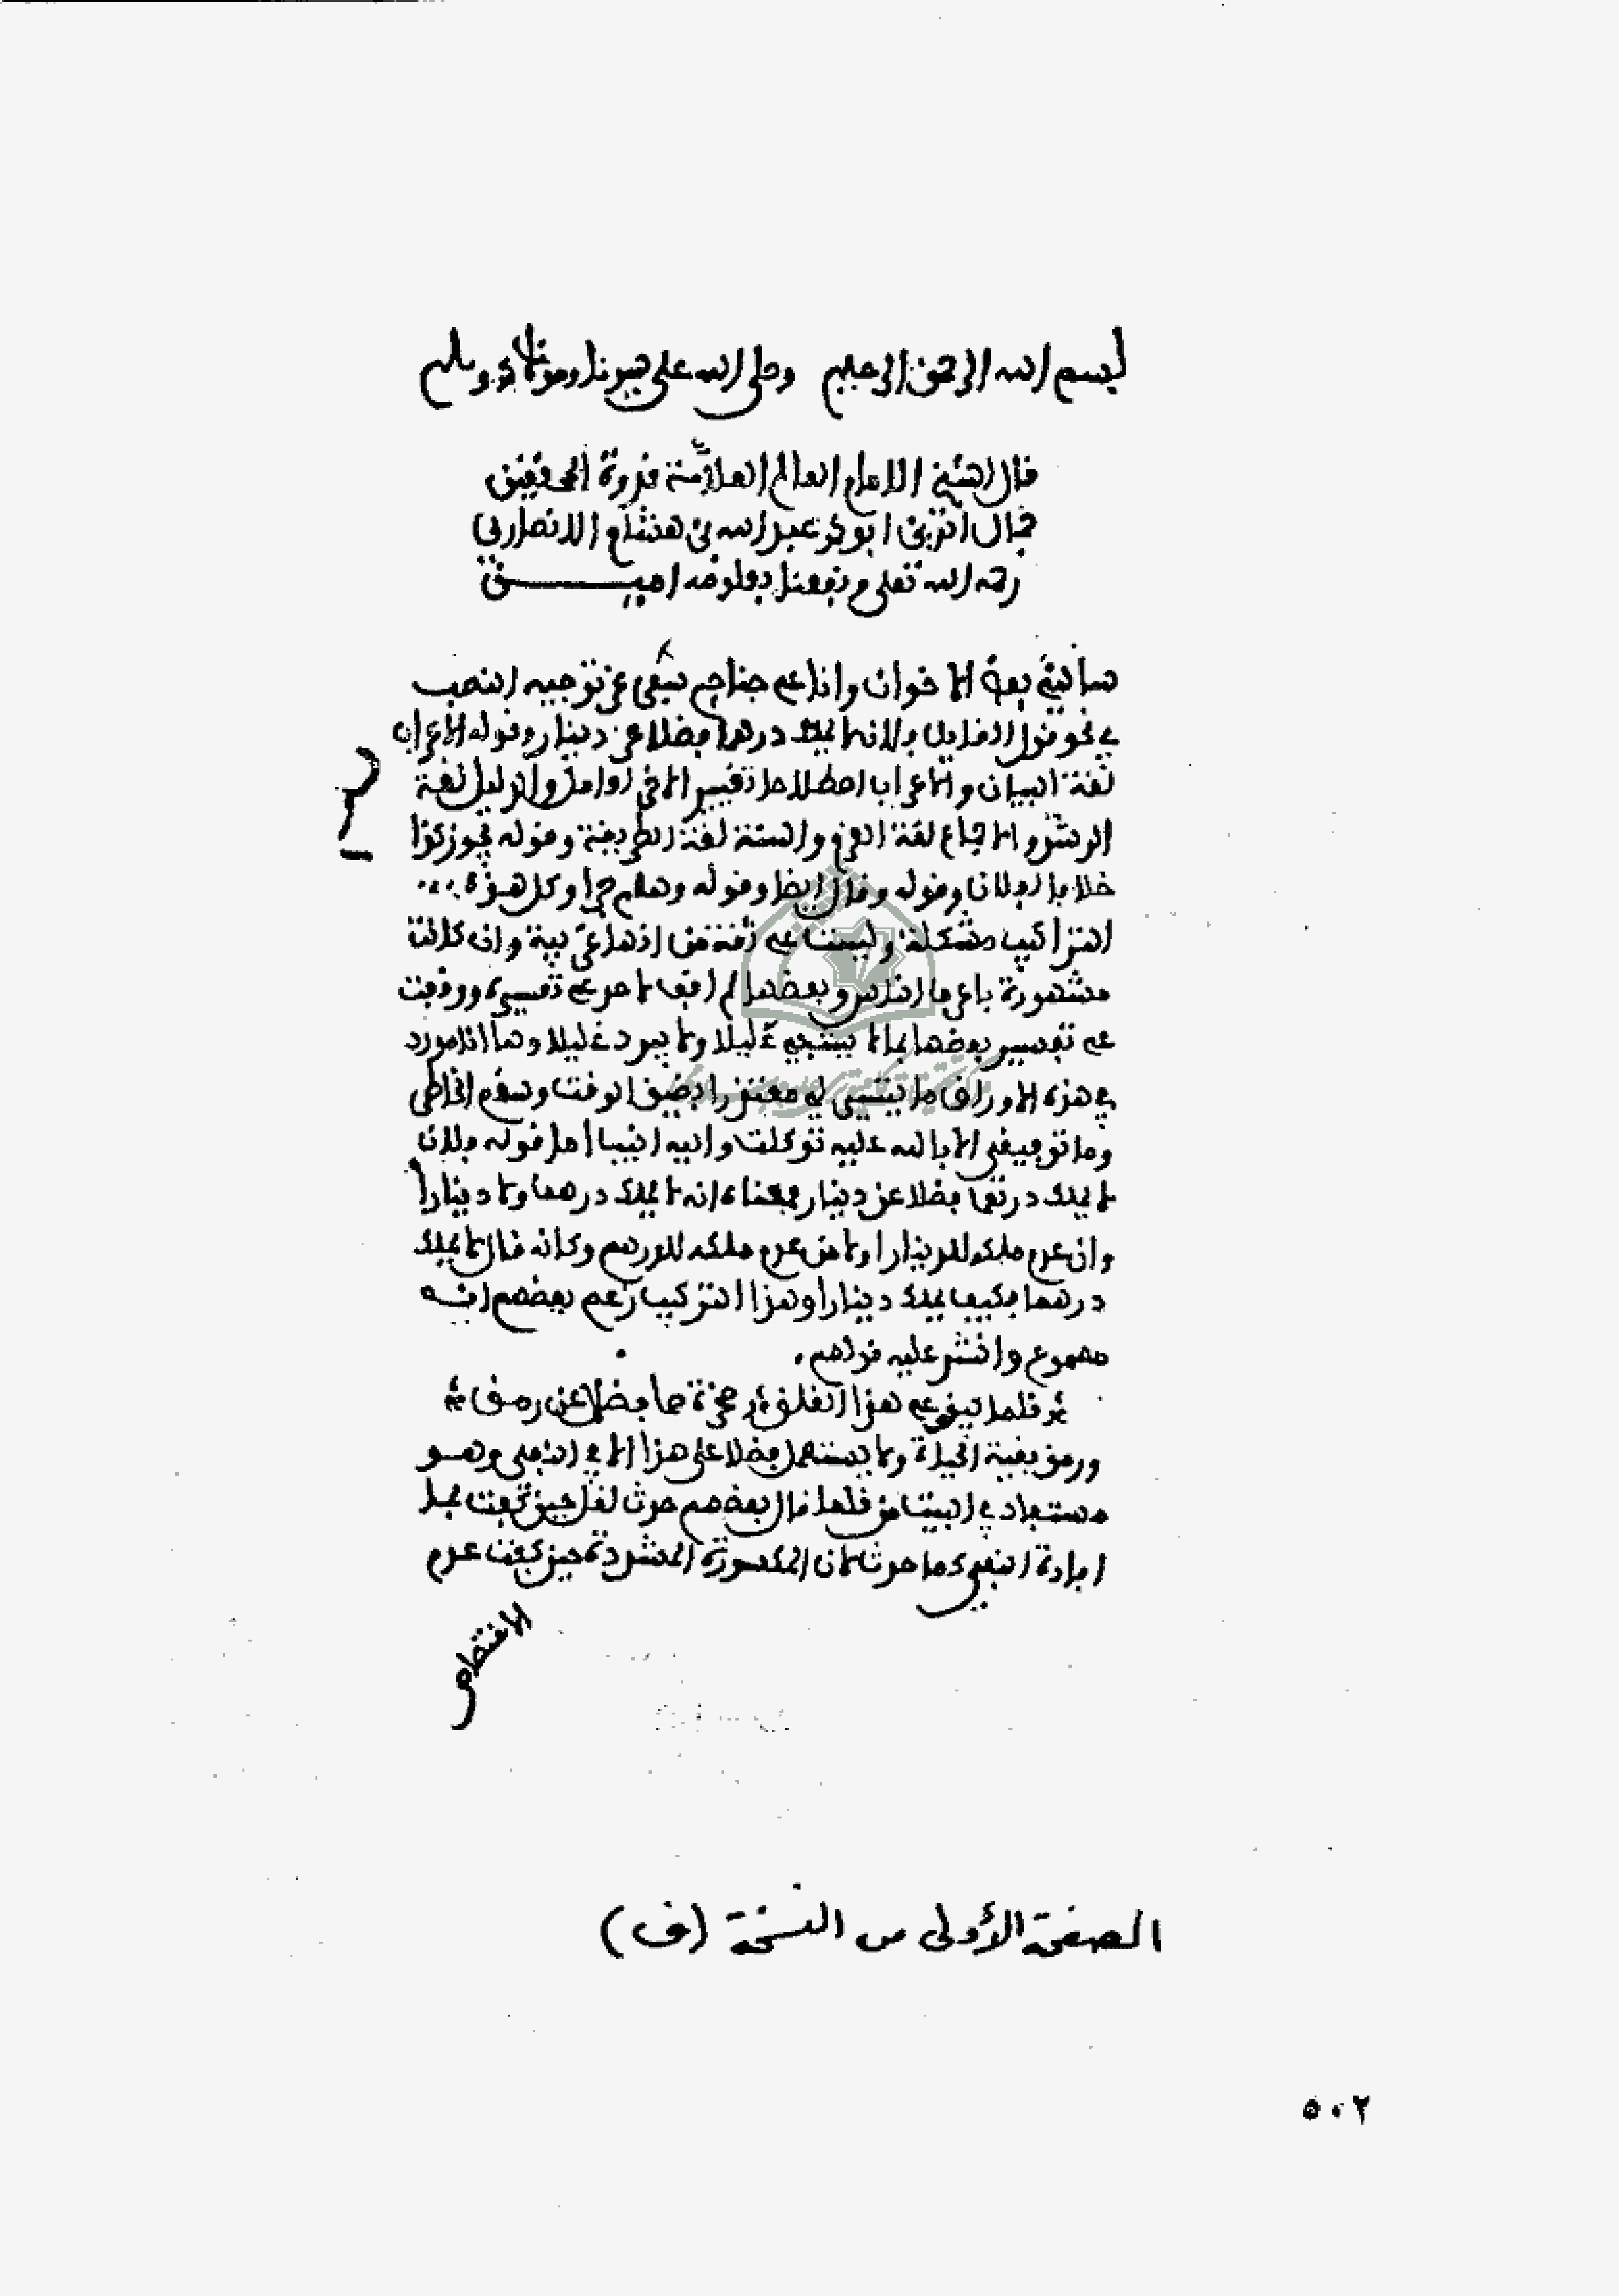 بسم الله الرحمن الرحيم وصلى الله على سيدنا ومولانا محمد وسلم
قال الشيخ الامام العالم العلامة قدوة المحققين
جمال الدين ابو محمد عبد الله بن هشام الانصاري
رحمه الله تعلى ونفعنا بعلومه امين
سألني بعض الاخوان وانا على جناح سفر عن توجيه النصب
في نحو قول القايل فلان لا يملك درهما فضلا عن دينار وقوله الاعراب
لغة البيان والاعراب اصطلاحا تغيير الاخر لعامل والدليل لغة
المرشد والاجماع لغة العزم والسنة لغة الطريقة وقوله يجوز كذا
خلافا لفلان وقوله وقال ايضا وقوله وهلم جرا وكل هذه
التراكيب مشكلة وليست على ثقة من انها عربية وان كانت
مشهورة في عرف الناس وبعضها لم اقف لاحد على تفسيره ووقفت
على تفسير بعضها بما لا يشفي عليلا ولا يبرد غليلا وها انا مورد
في هذه الاوراق ما تيسر لي معتذرا بضيق الوقت وسقم الخاطر
وما توفيقي الا بالله عليه توكلت واليه انيب اما قوله فلان
لا يملك درهما فضلا عن دينار فمعناه انه لا يملك درهما ولا دينارا
وان عدم ملكه للدينار اولى من عدم ملكه للدرهم وكانه قال لا يملك
درهما فكيف يملك دينارا وهذا التركيب زعم بعضهم انه
مسموع وانشد عليه قولهم
قلما يبقى على هذا القلق صخرة صما فضلا عن رمق
ورمق بقية الحياة ولا يستعمل فضلا على هذا الا في النفي وهو
مستفاد في البيت من قلما قال بعضهم حدث لقل حين كفت بما
افادة النفي كما حدث لان المكسورة المشددة حين كفت عدم
الاختصاص
الصفحة الأولى من النسخة (ف)
٥٠٢